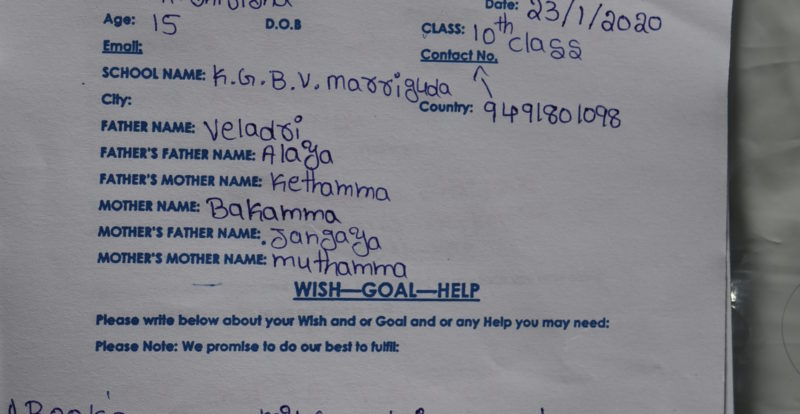 Date: 23/1/2020
Age: 15 D.O.B CLASS: 10th class
Email: Contact No.
SCHOOL NAME: K.G.B.V. marriguda
City: Country: 9491801098
FATHER NAME: Veladri
FATHER'S FATHER NAME: Alaya
FATHER'S MOTHER NAME: Kethamma
MOTHER NAME: Bakamma
MOTHER'S FATHER NAME: Jangaya
MOTHER'S MOTHER NAME: muthamma
WISH—GOAL—HELP
Please write below about your Wish and or Goal and or any Help you may need:
Please Note: We promise to do our best to fulfil: